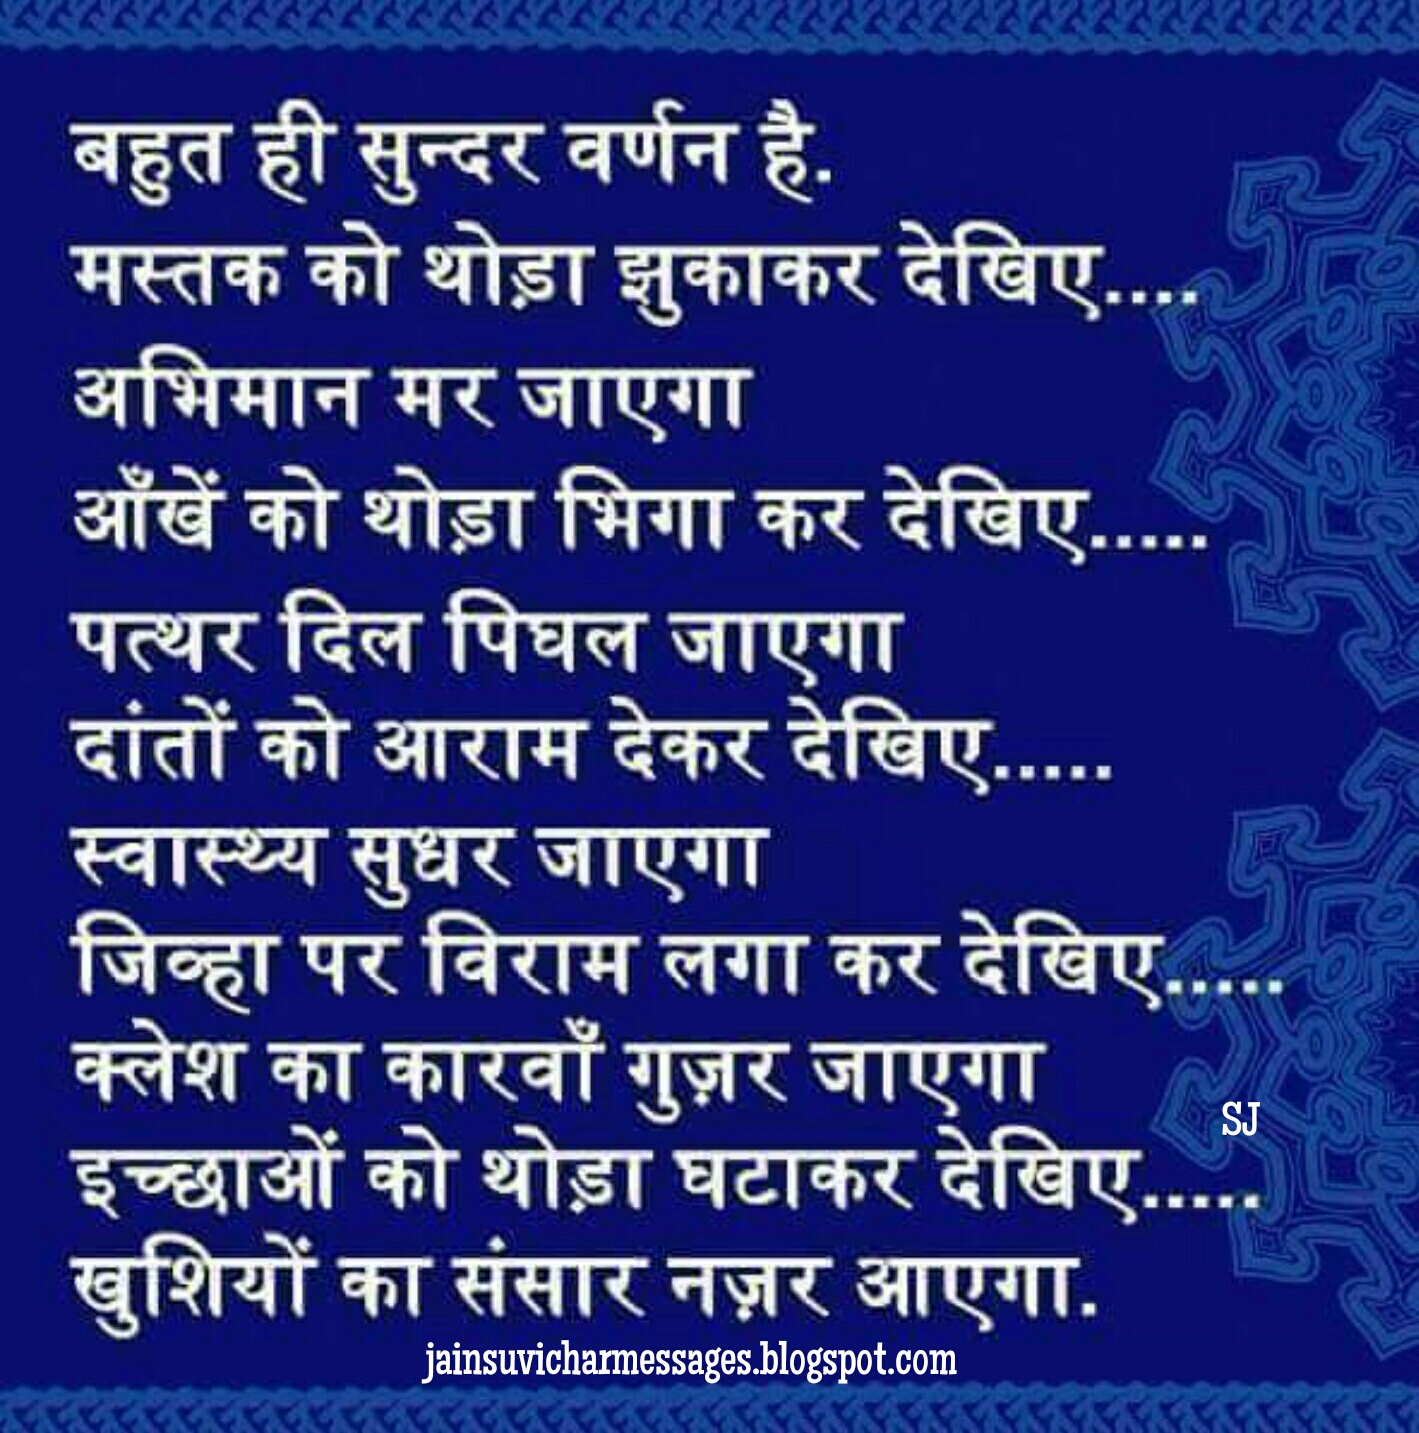 बहुत ही सुन्दर वर्णन है.
मस्तक को थोड़ा झुकाकर देखिए....
अभिमान मर जाएगा
आँखें को थोड़ा भिगा कर देखिए.....
पत्थर दिल पिघल जाएगा
दांतों को आराम देकर देखिए.....
स्वास्थ्य सुधर जाएगा
जिव्हा पर विराम लगा कर देखिए.....
क्लेश का कारवाँ गुज़र जाएगा
SJ
इच्छाओं को थोड़ा घटाकर देखिए.....
खुशियों का संसार नज़र आएगा.
jainsuvicharmessages.blogspot.com